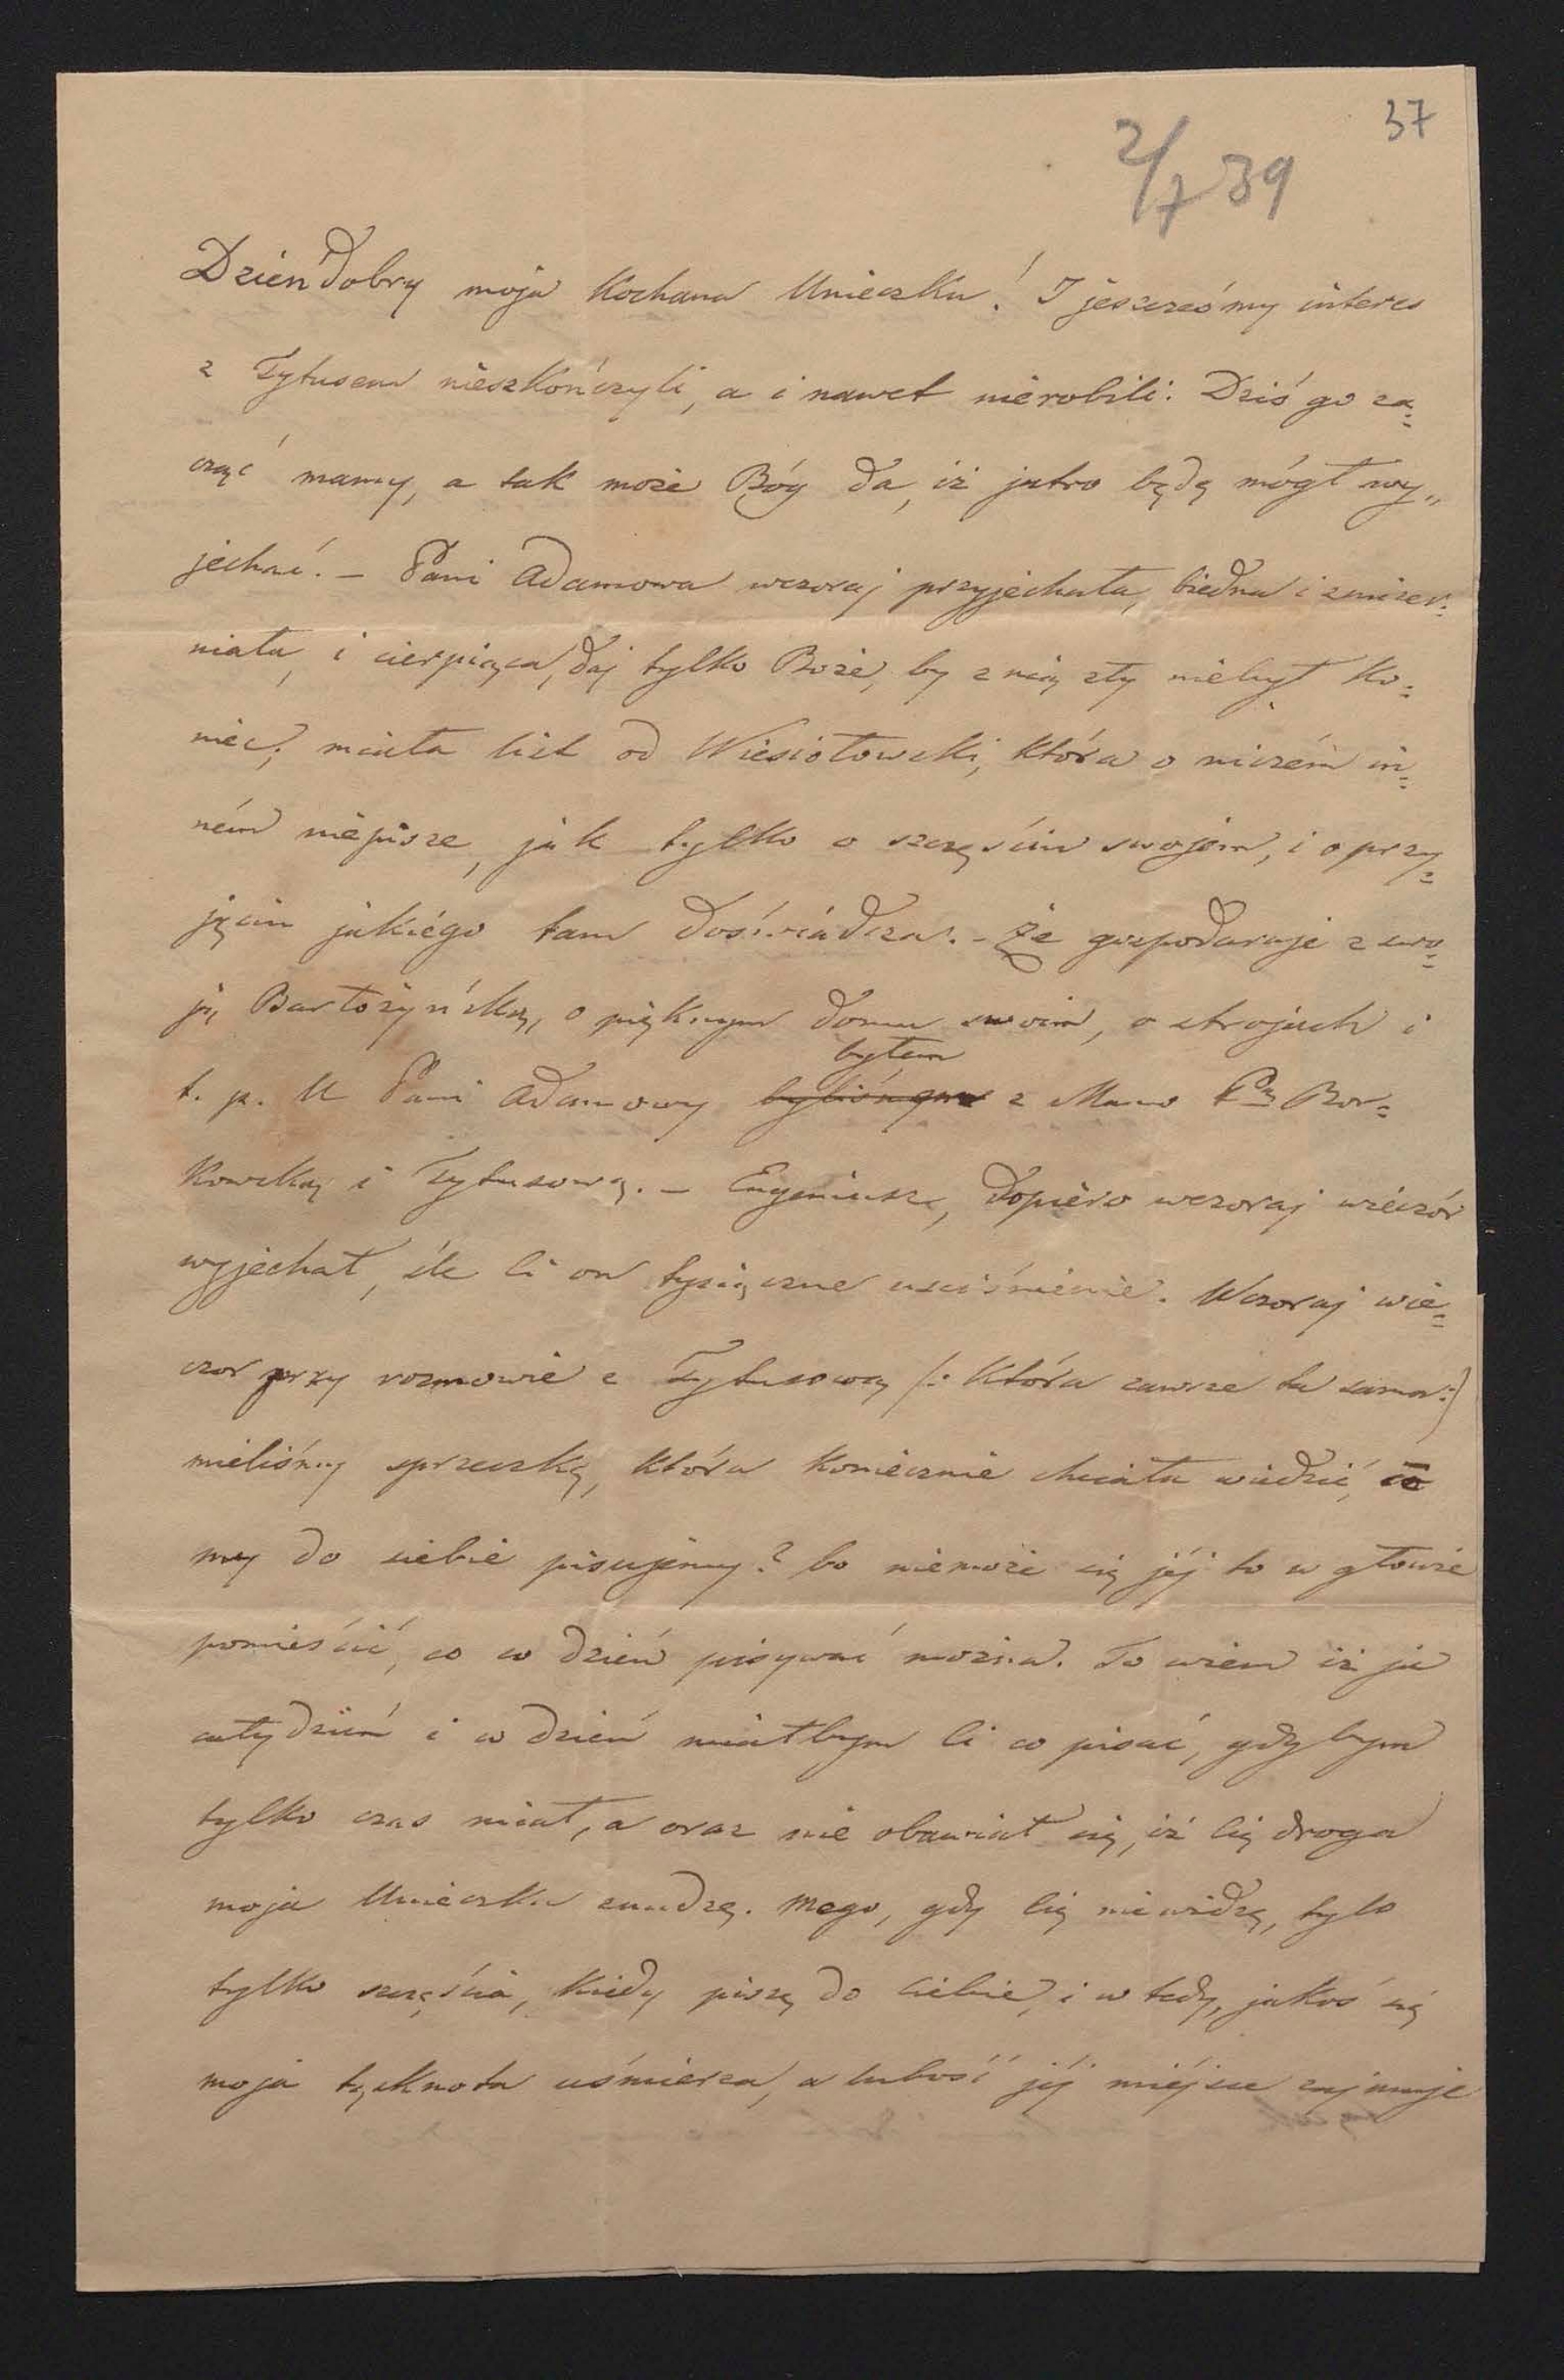 37
2/7 39
Dzień dobry moja Kochana Unieczku! I jeszcześmy interes
z Tytusem nieszkończyli, a i nawet nierobili. Dziś go za=
cząć mamy, a tak może Bóg da, iż jutro będę mógł wy„
jechać. – Pani Adamowa wczoraj przyjechała, biedna i zmizer=
niała, i cierpiąca, daj tylko Boże, by z nią zły niebył Ko=
niec; miała list od Wiesiołowski, która o niczém in=
ném niepisze, jak tylko o szczęściu swojem, i o przy=
jęciu jakiégo tam doświadcza. – Że gospodaruje z swo=
ją Bartożyńską, o pięknym domu swoim, o strojach i
t. p. U Pani Adamowy byłem z Mamo Pą Bor=
Kowską i Tytusową. – Eugeniusz, dopiero wczoraj wieczór
wyjechał, śle Ci on tysiączne uściśnienie. Wczoraj wie=
czor przy rozmowie z Tytusową /: która zawsze ta sama :)
mieliśmy sprzeczkę, która Koniecznie chciała wiedzić, co
my do siebie pisujemy? bo niemoże się jéj to w głowie
pomieścić, co w dzień pisywać można. To wiem iż ja
cały dzień i w dzień miałbym Ci co pisać, gdybym
tylko czas miał, a oraz nie obawiał się, iż Cię droga
moja Unieczku znudzę. Mego, gdy Cię niewidzę, tylo
tylko szczęścia, Kiedy piszę do Ciebie, i w tedy, jakoś się
moja tęsknota uśmierza, a lubość jéj miéjsce zajmuje